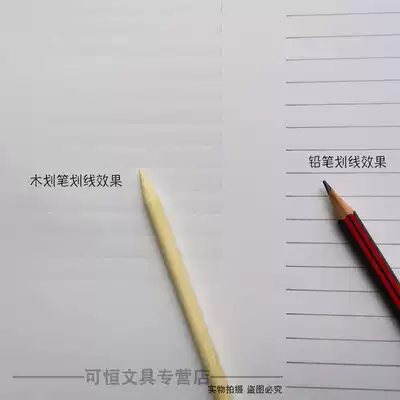 铅笔划线效果
木划笔划线效果
可恒文具专营店
实物拍摄 盗图必究